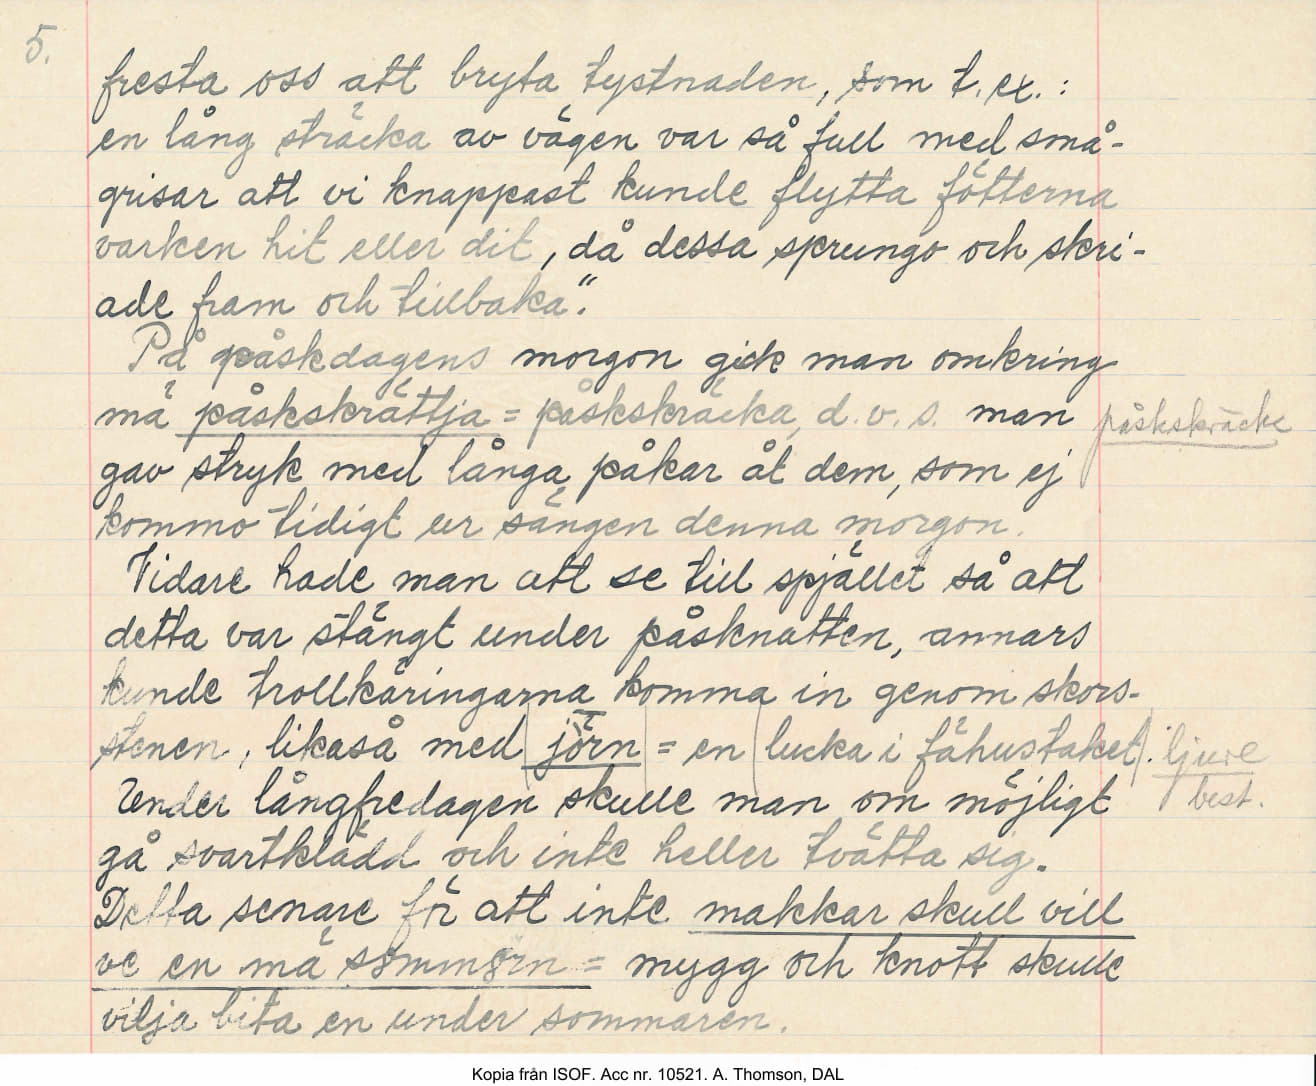 5.
fresta oss att bryta tystnaden, som t. ex. :
en lång sträcka av vägen var så full med små-
grisar att vi knappast kunde flytta fötterna
varken hit eller dit, då dessa sprungo och skri-
ade fram och tillbaka".
På påskdagens morgon gick man omkring
mä påskskrättja = påskskräcka, d. v. s. man
påskskräcke
gav stryk med långa påkar åt dem, som ej
kommo tidigt ur sängen denna morgon.
Vidare hade man att se till spjället så att
detta var stängt under påsknatten, annars
kunde trollkäringarna komma in genom skors-
stenen, likaså med jörn = en lucka i fähustaket.
ljure
best.
Under långfredagen skulle man om möjligt
gå svartklädd och inte heller tvätta sig.
Detta senare för att inte makkar skull vill
ve en mä sommörn = mygg och knott skulle
vilja bita en under sommaren.
Kopia från ISOF. Acc nr. 10521. A. Thomson, DAL